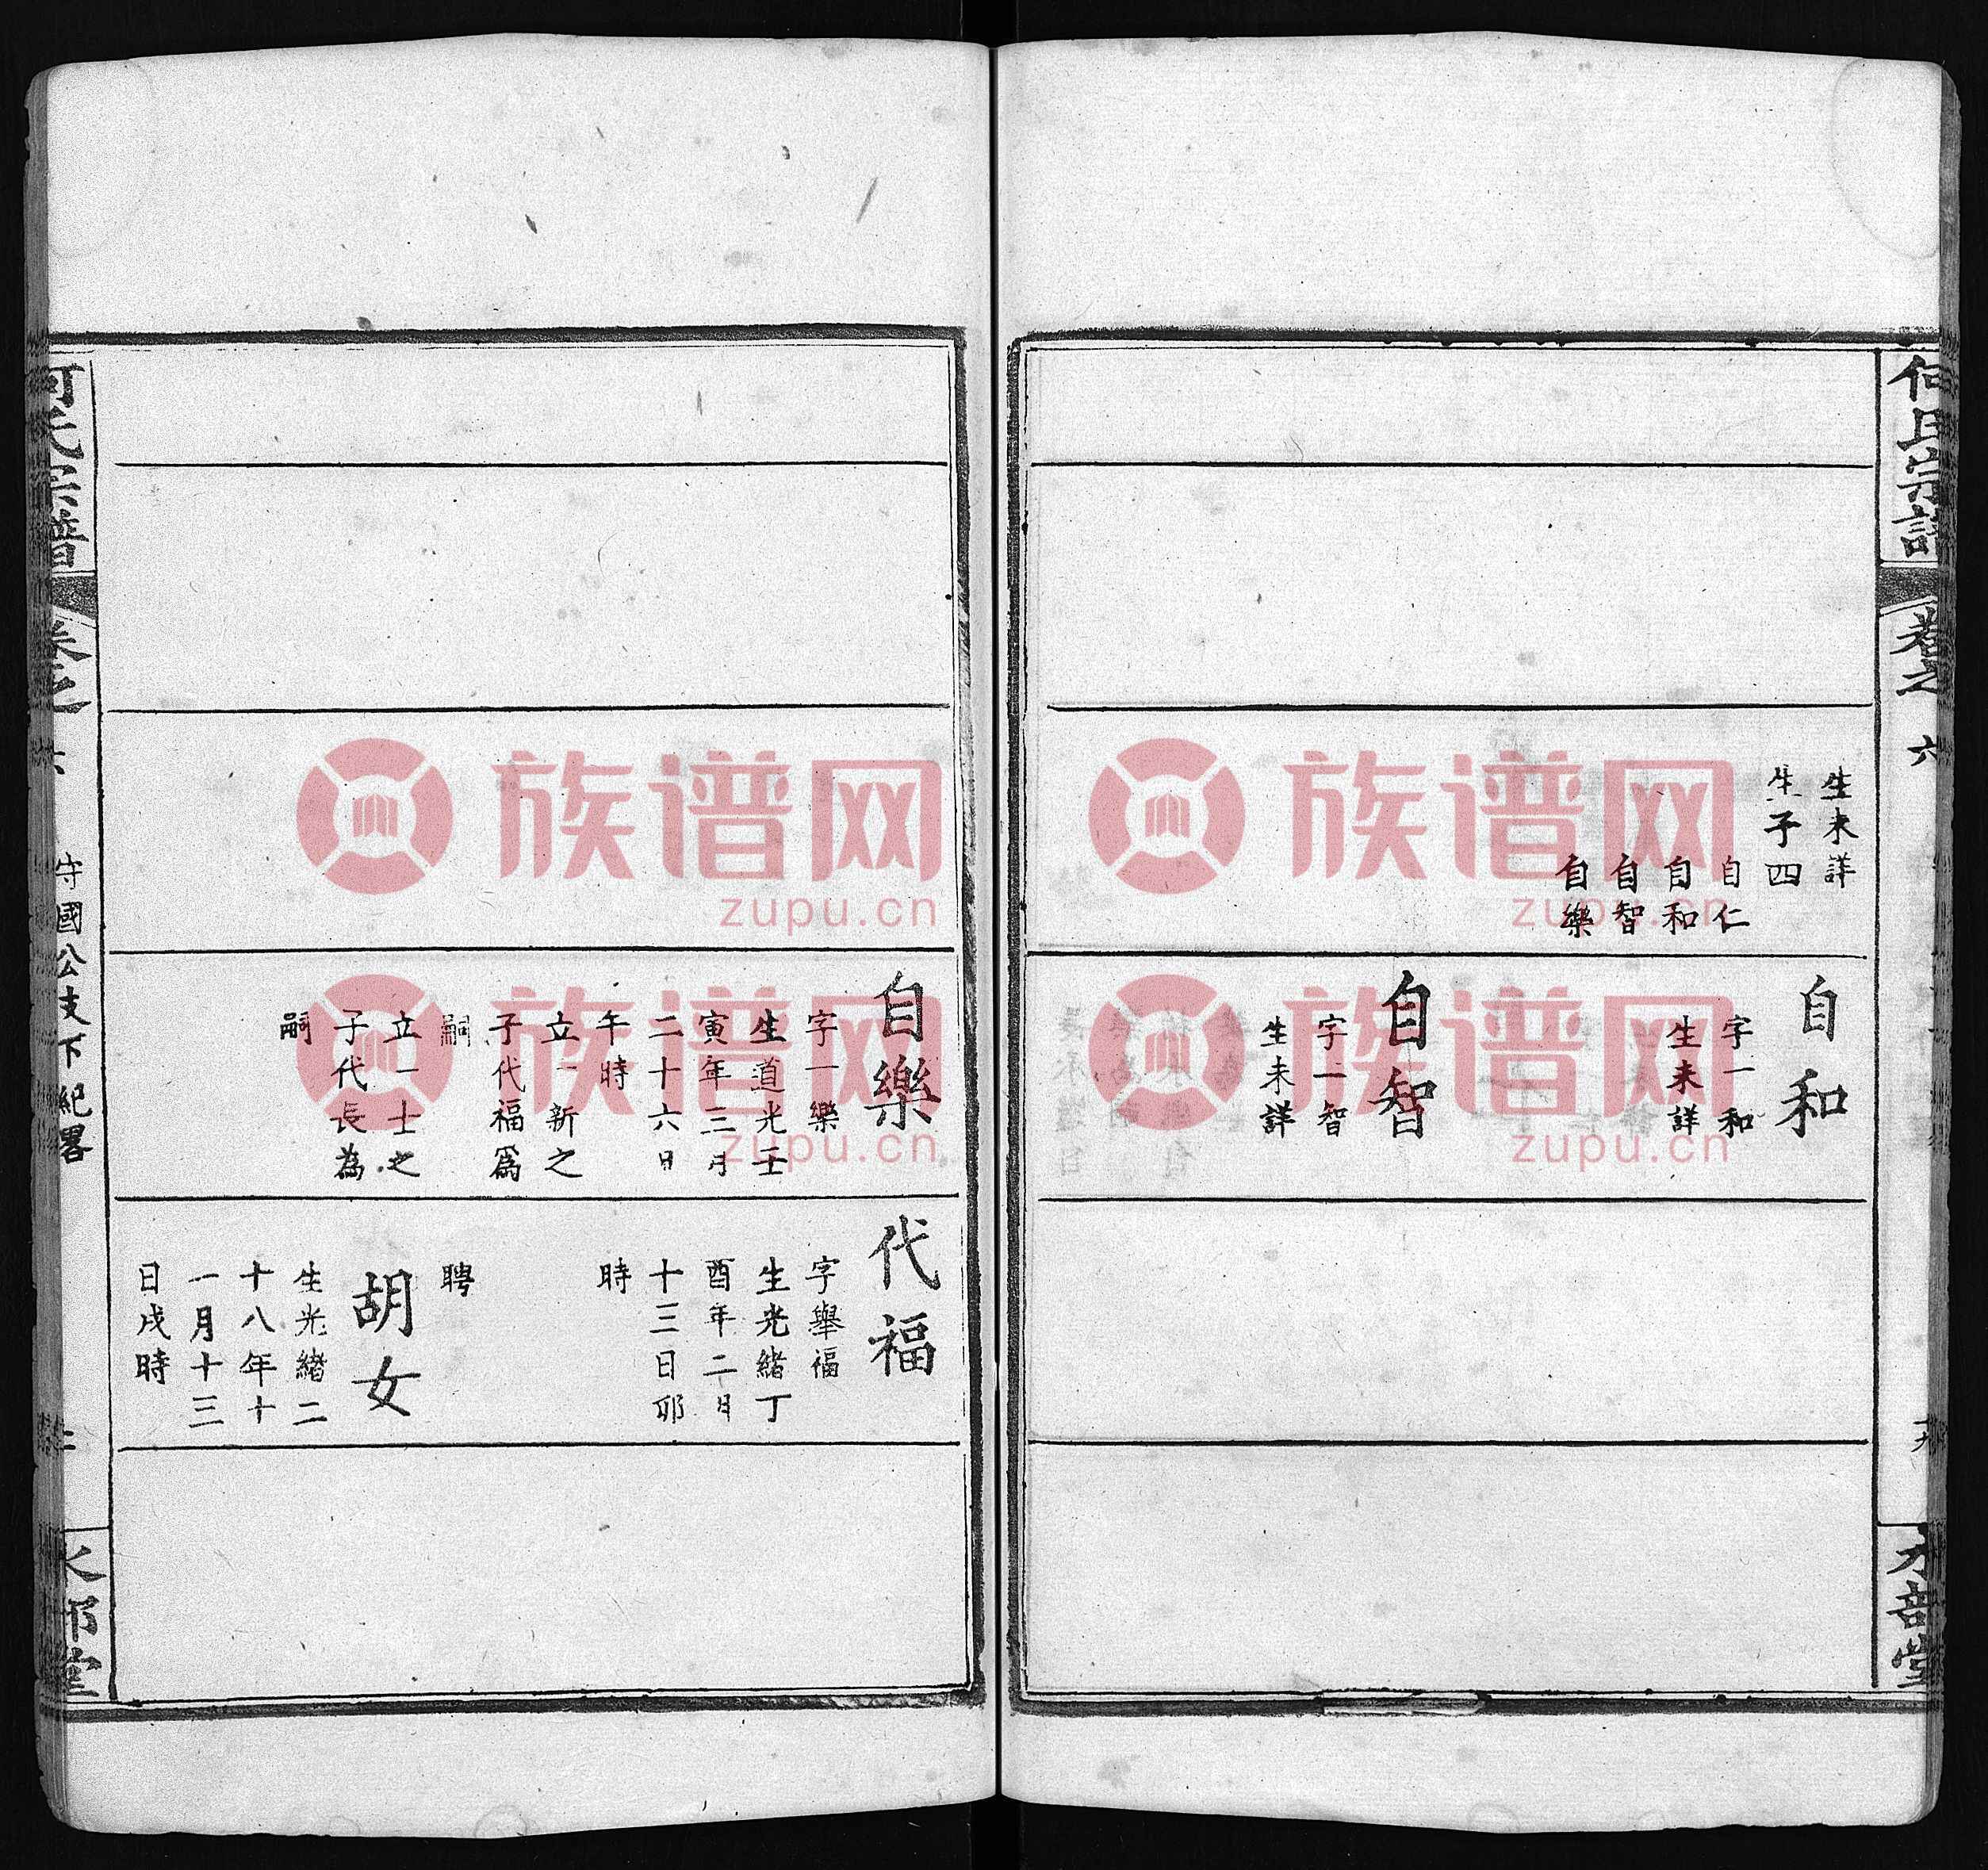 何氏宗譜
卷之
六
水部堂
生未詳
生子四
自仁
自和
自智
自樂
自和
字一和
生未詳
自智
字一智
生未詳
何氏宗譜
卷之
六
守國公支下紀畧
水部堂
自樂
字一樂
生道光壬
寅年三月
二十六日
午時
立一新之
子代福爲
嗣
立一士之
子代長為
嗣
代福
字舉福
生光緒丁
酉年二月
十三日夘
時
聘
胡女
生光緒二
十八年十
一月十三
日戌時
族谱网
zupu.cn
族谱网
zupu.cn
族谱网
zupu.cn
族谱网
zupu.cn